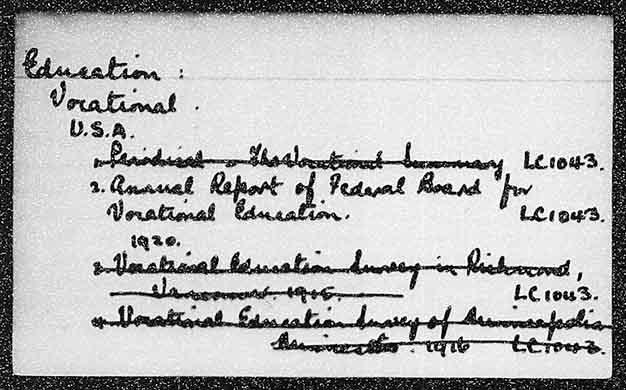 Education :
Vocational .
U.S.A.
1. Periodical - The Vocational Summary LC1043.
2. Annual Report of Federal Board for
Vocational Education. LC1043.
1920.
3. Vocational Education Survey in Richmond,
1915. LC1043.
4. Vocational Education Survey of Minneapolis
Minnesota. 1916 LC1043.